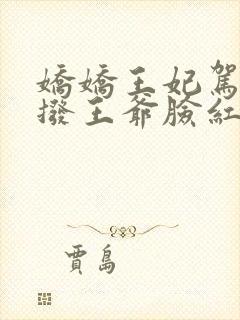 嬌嬌王妃駕
撥王爺臉紅
賈島